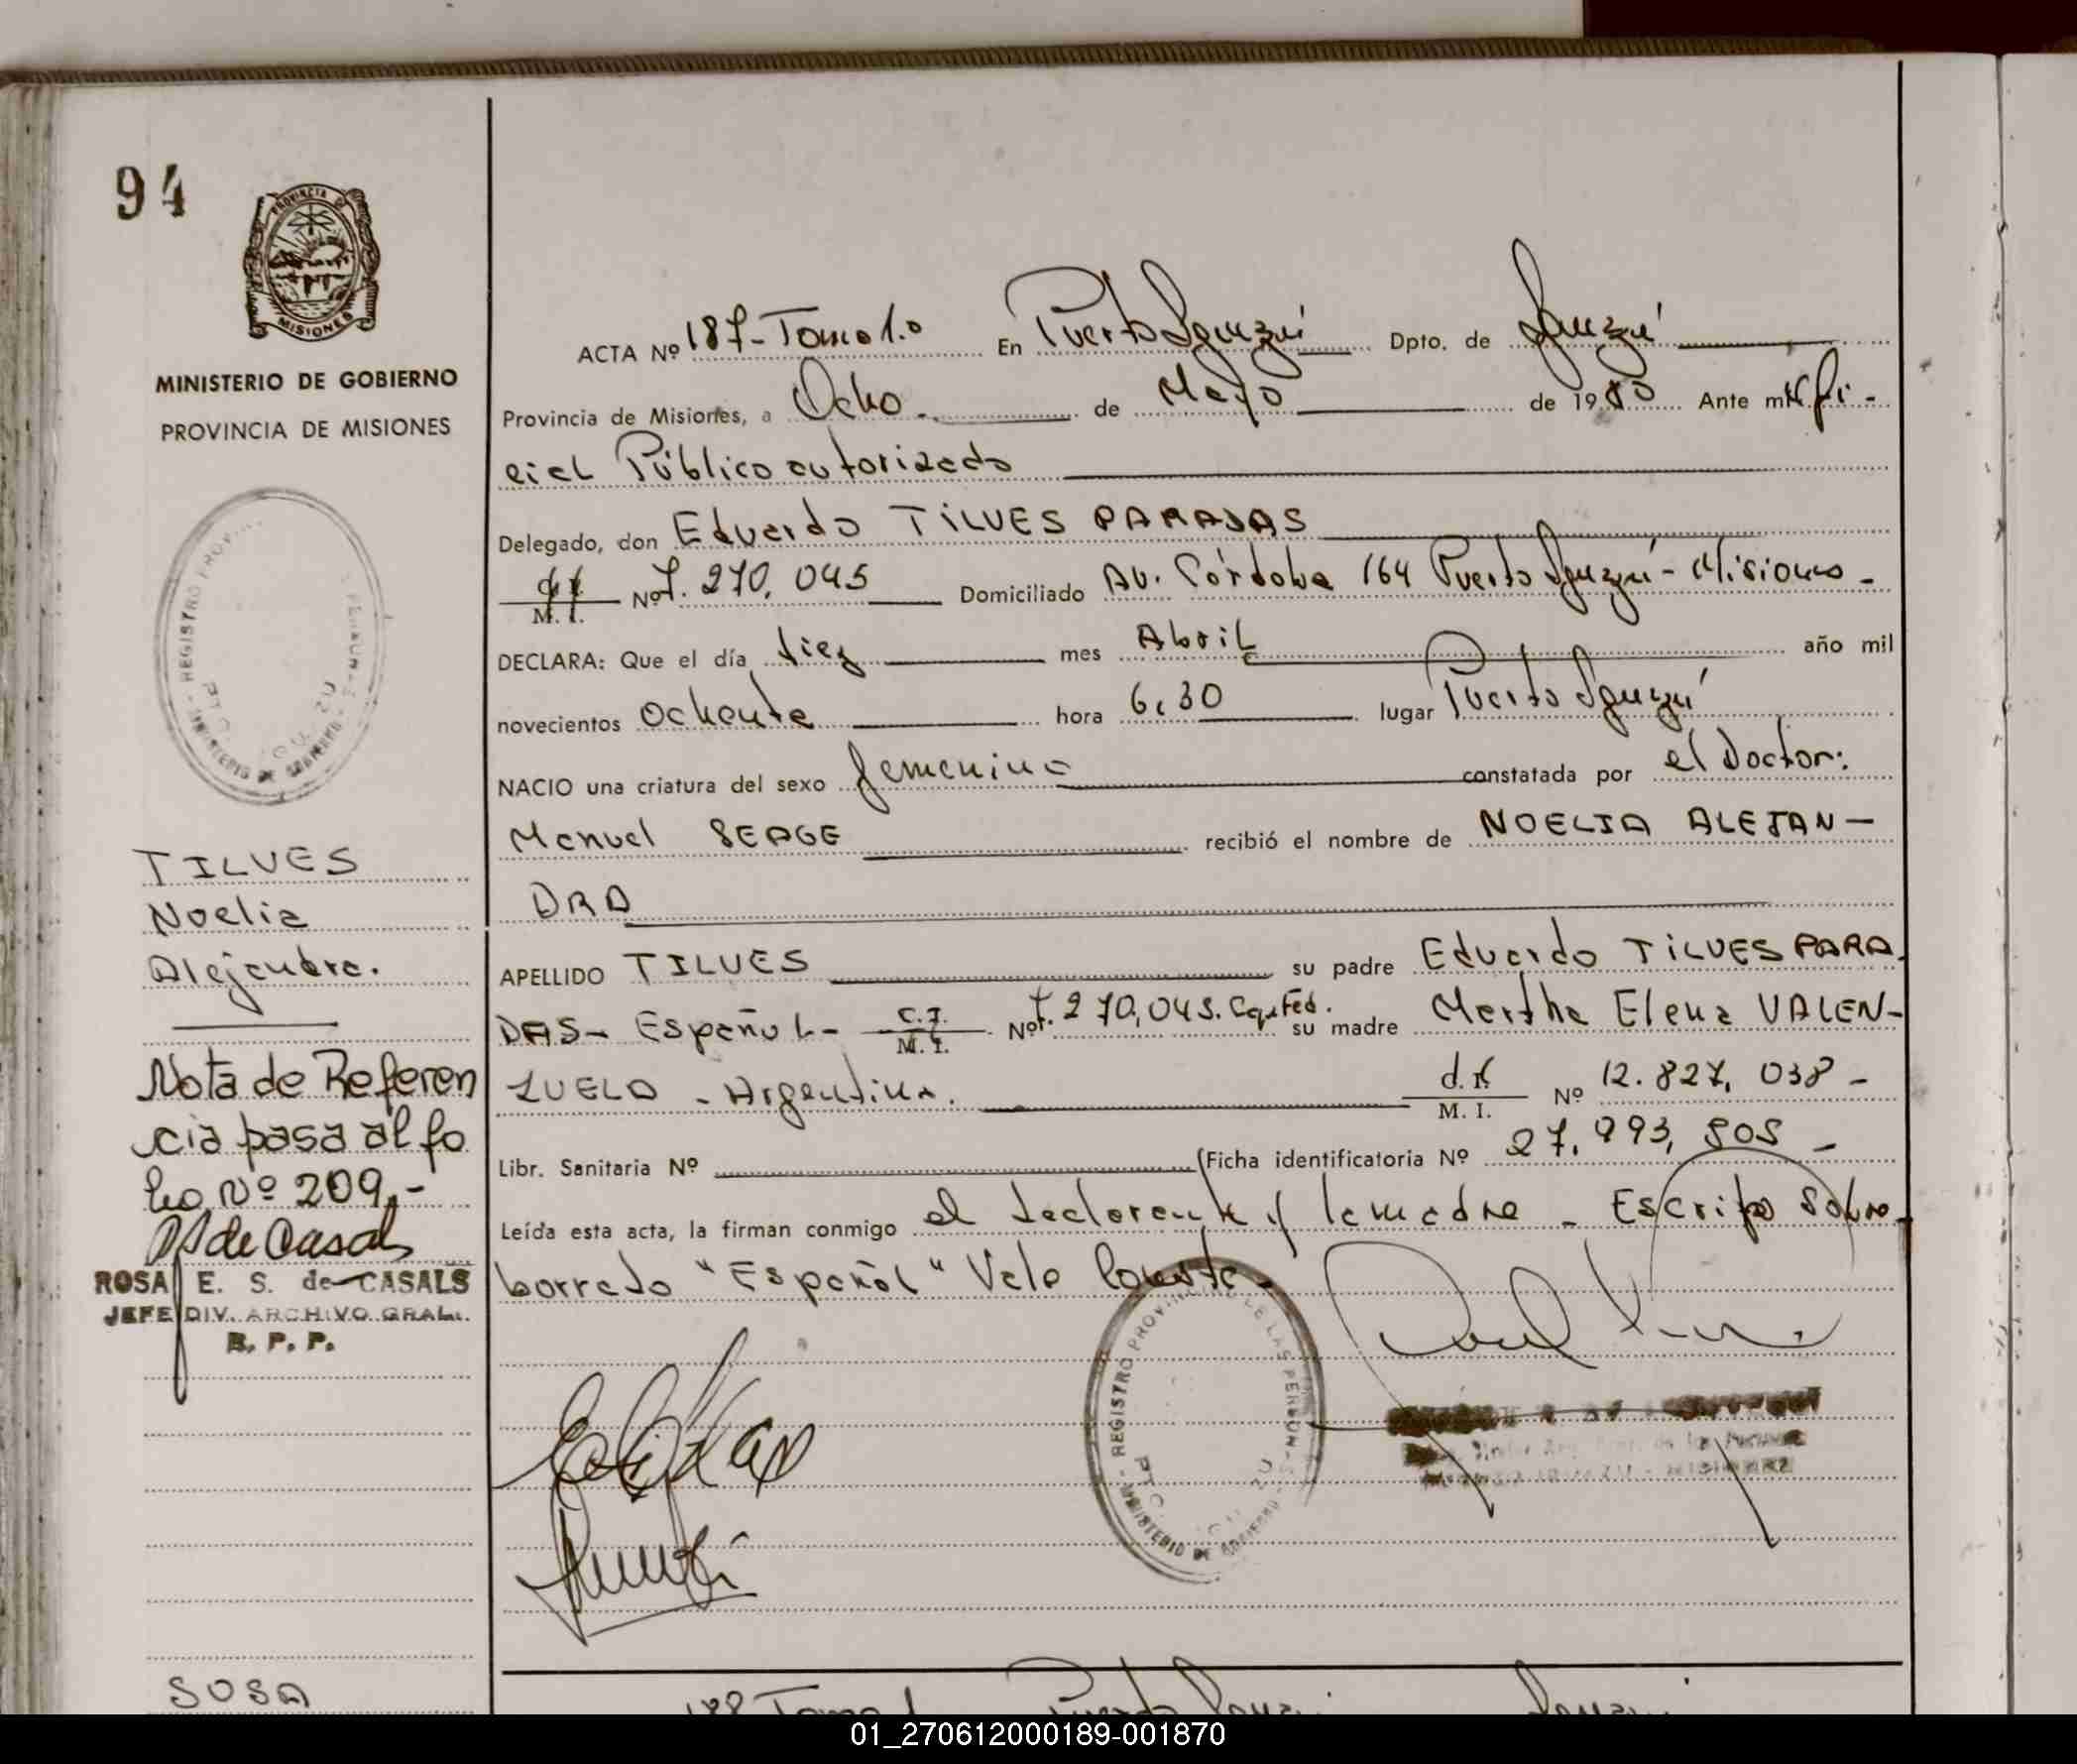 94
PROVINCIA DE
MISIONES
MINISTERIO DE GOBIERNO
PROVINCIA DE MISIONES
REGISTRO PROV
MINISTERIO DE GOBIERNO
TILVES
Noelia
Alejandra.
Nota de Referen
cia pasa al fo
lio Nº 209.-
RS de Casals
ROSA E. S. de CASALS
JEFE DIV. ARCHIVO GRAL.
R. P. P.
SOSA
ACTA Nº 187-Tomo 1.o En Puerto Iguazú Dpto. de Iguazú
Provincia de Misiones, a Ocho.- de Mayo de 1980 Ante mi Ofi-
cial Público autorizado
Delegado, don Eduardo TILVES PARADAS
M. I. Nº 7.270.045 Domiciliado Av. Córdoba 164 Puerto Iguazú - Misiones -
DECLARA: Que el día diez mes Abril año mil
novecientos Ochenta hora 6,30 lugar Puerto Iguazú
NACIO una criatura del sexo femenino constatada por el Doctor:
Manuel SEAGE recibió el nombre de NOELIA ALEJAN-
DRA
APELLIDO TILVES su padre Eduardo TILVES PARA
DAS - Español - C.I. M. I. Nº 7.270.045. Fed. su madre Martha Elena VALEN-
ZUELA - Argentina. M. I. Nº 12.827.038 -
Libr. Sanitaria Nº (Ficha identificatoria Nº 27.993,505 -
Leída esta acta, la firman conmigo el declarante y la madre - Escrito sobre
borrado "Español" Vale
REGISTRO PROVINCIAL DE LAS PERSONAS
MINISTERIO DE GOBIERNO
188 Tomo 1 Puerto Iguazú Iguazú
01_270612000189-001870